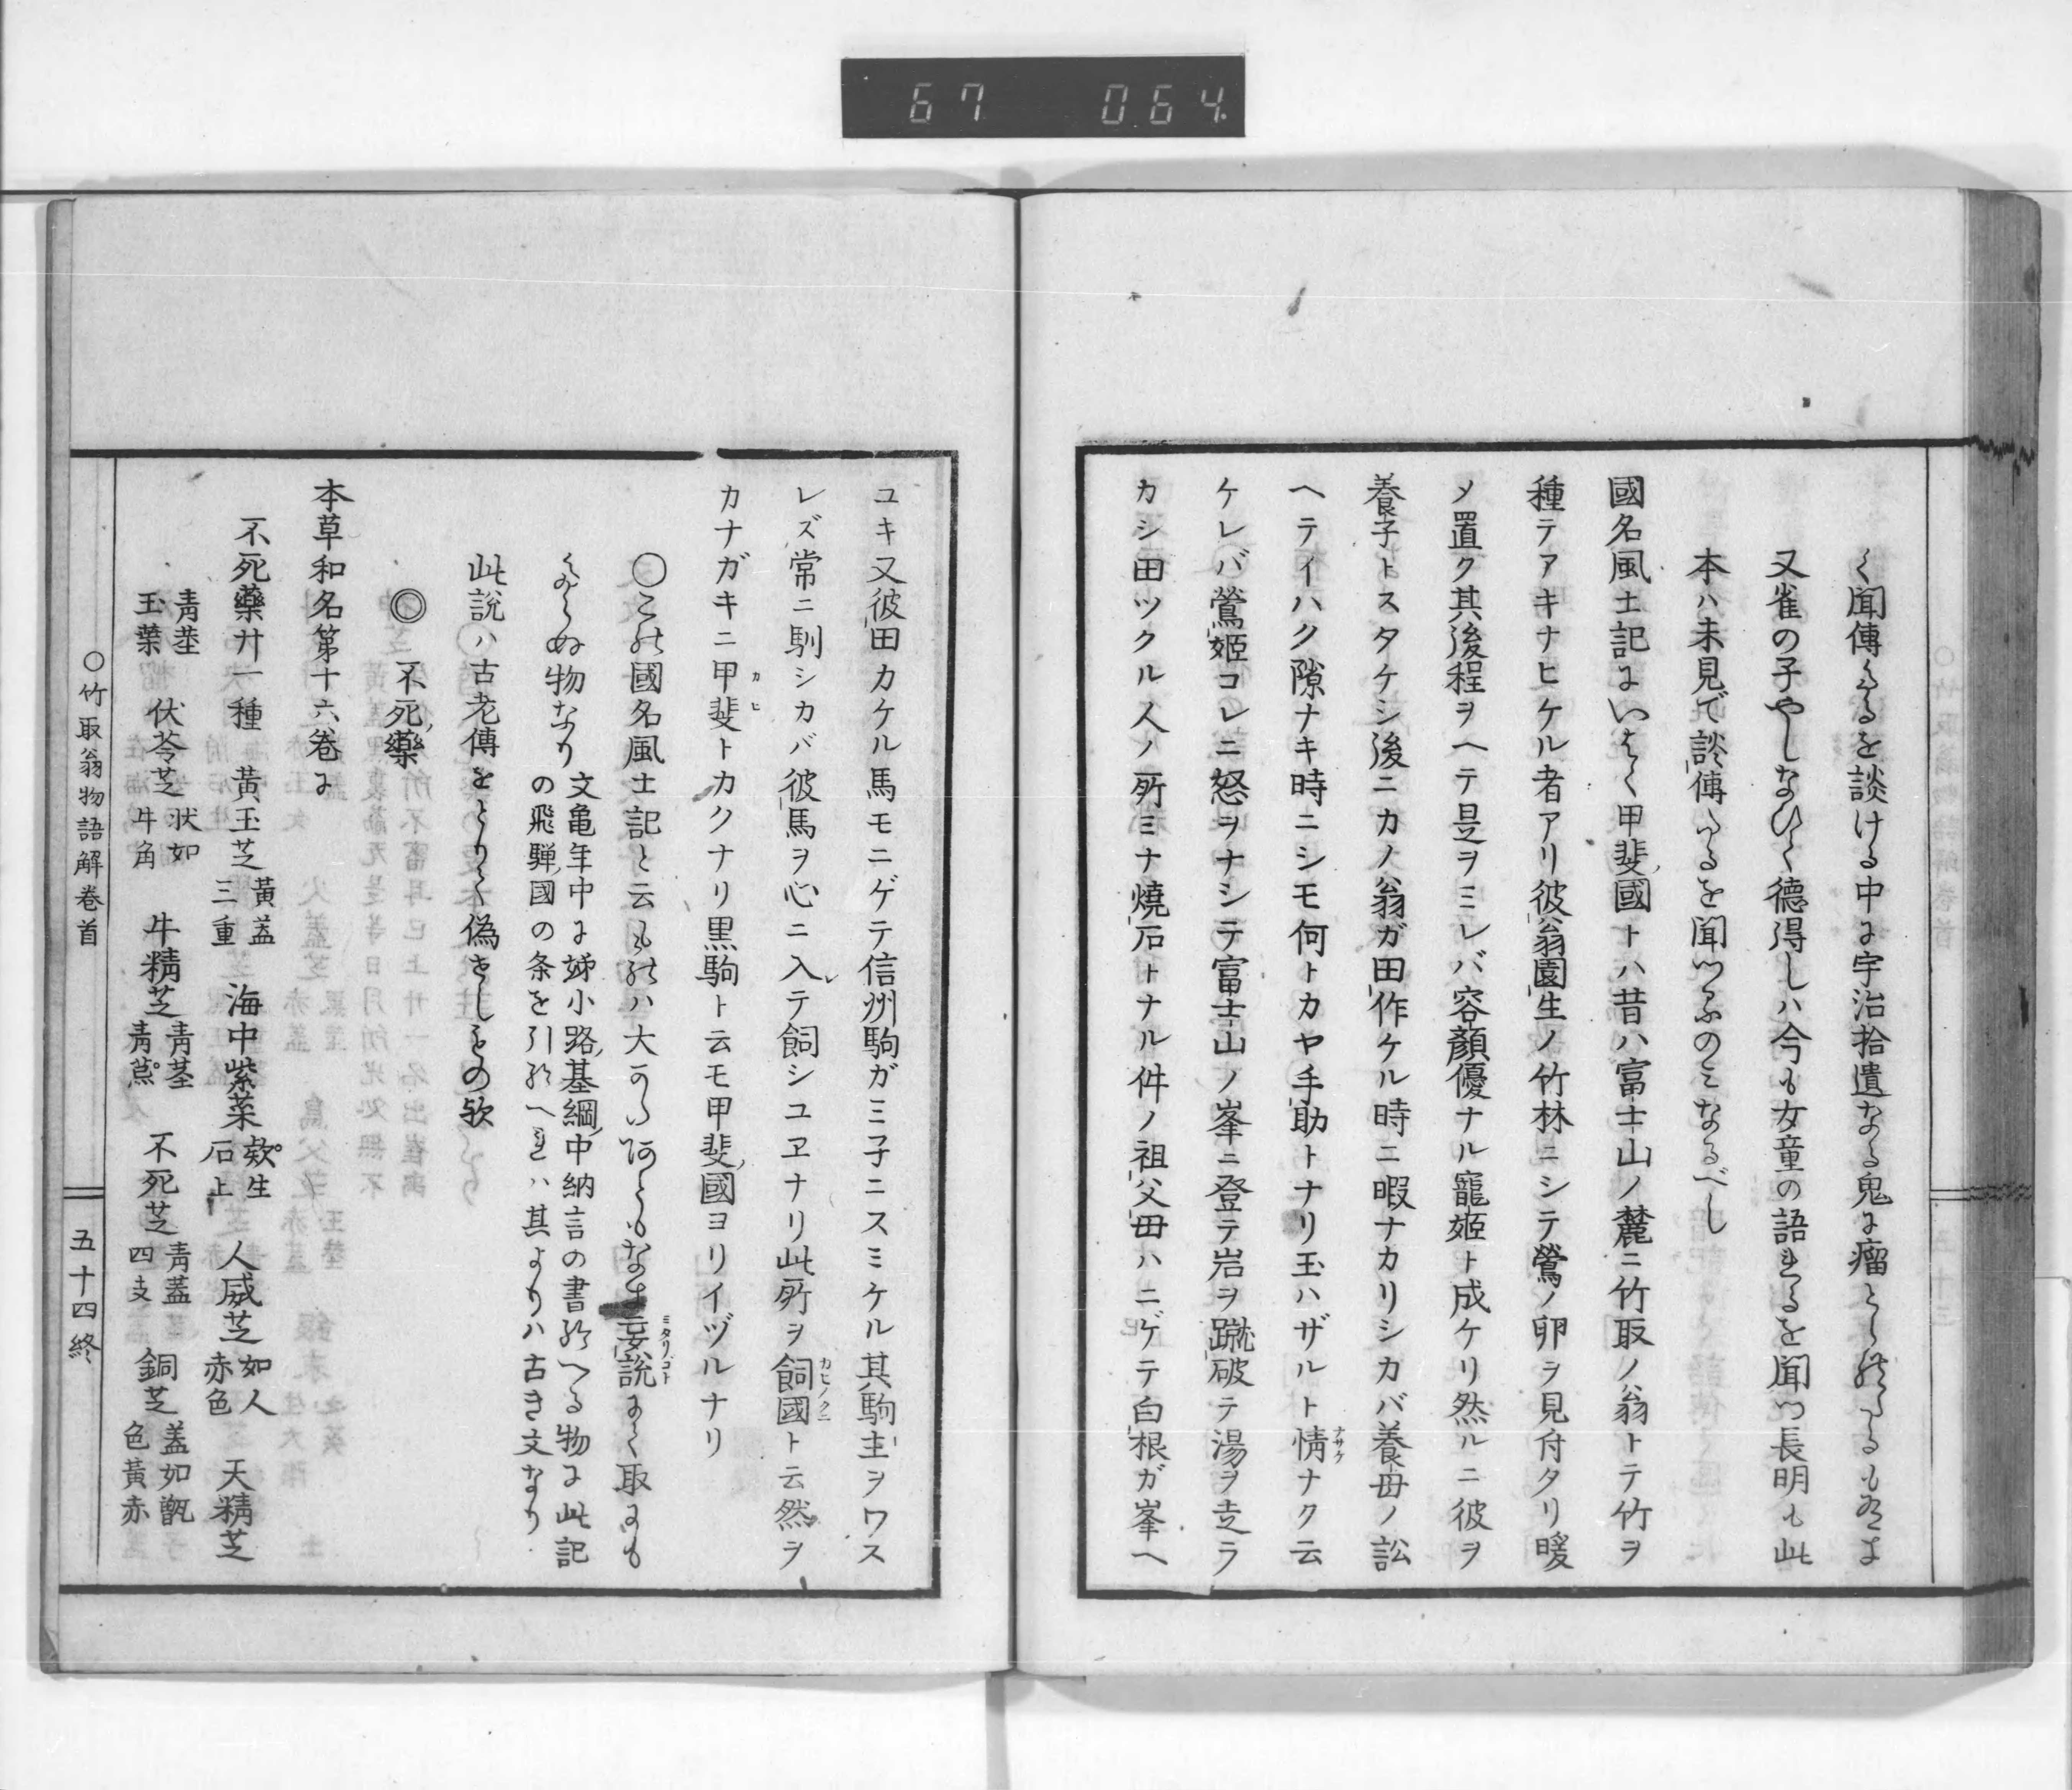 67 064
く聞傳たるを談ける中に宇治拾遺なる鬼に瘤とられたるも有よ
又雀の子やしなひて德得しハ今も女童の語れるを聞つ長明も此
本ハ未見で談傳たるを聞つるのミなるべし
國名風土記にいはく甲斐國トハ昔ハ富士山ノ麓ニ竹取ノ翁トテ竹ヲ
種テアキナヒケル者アリ彼翁園生ノ竹林ニシテ鶯ノ卵ヲ見付タリ暖
メ置ク其後程ヲヘテ是ヲミレバ容顔優ナル寵姫ト成ケリ然ルニ彼ヲ
養子トスタケシ後ニカノ翁ガ田作ケル時ニ暇ナカリシカバ養母ノ訟
ヘテイハク隙ナキ時ニシモ何トカヤ手助トナリ玉ハザルト情ナク云
ナサケ
ケレバ鶯姫コレニ怒ヲナシテ富士山ノ峯ニ登テ岩ヲ蹴破テ湯ヲ走ラ
カシ田ツクル人ノ所ミナ燒石トナル件ノ祖父母ハニゲテ白根ガ峯へ
ユキ又彼田カケル馬モニゲテ信州駒ガミ子ニスミケル其駒主ヲワス
レズ常ニ馴シカバ彼馬ヲ心ニ入レテ飼シユヱナリ此所ヲ飼國ト云然ヲ
カヒノクニ
カナガキニ甲斐トカクナリ黒駒ト云モ甲斐國ヨリイヅルナリ
カヒ
○これ國名風土記と云もれハ大かた何くもなき妄說にて取にも
ミタリコト
たらぬ物なり
文亀年中に姊小路基綱中納言の書給へる物に此記
の飛騨國の条を引給へれハ其よりハ古き文なり
此說ハ古老傳をとりて偽きしもの歟
◎ 不死藥
本草和名第十六巻に
不死藥廾一種 黃玉芝 黃盖三重 海中紫菜 欵生石上 人威芝 如人赤色 天精芝
青莖玉葉 伏苓芝 状如牛角 牛精芝 青莖青蕊 不死芝 青蓋四支 銅芝 盖如甑色黃赤
○竹取翁物語解巻首 五十四終